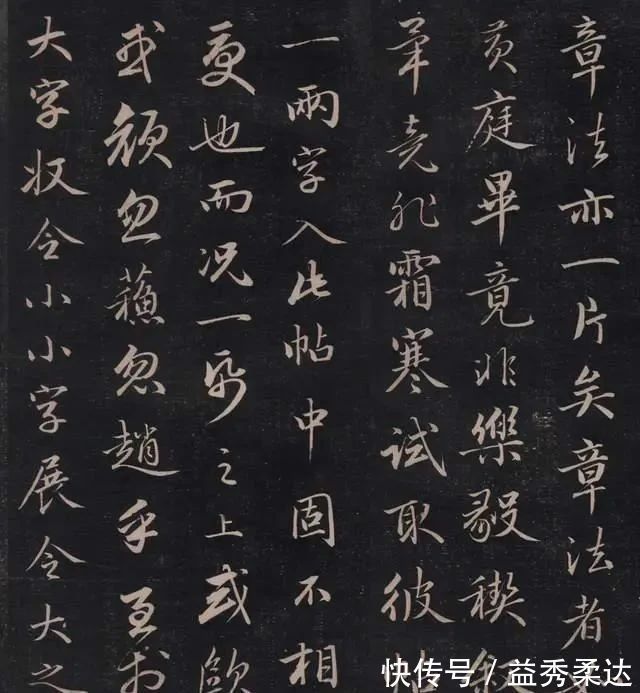 章法亦一片矣章法者
黄庭畢竟非樂毅稧
畢竟非霜寒試取彼帖
一兩字入此帖中固不相
更也而况一帋之上或歐
或顔忽蘓忽趙乎至於
大字収令小小字展令大之
快传号 / 益秀柔达